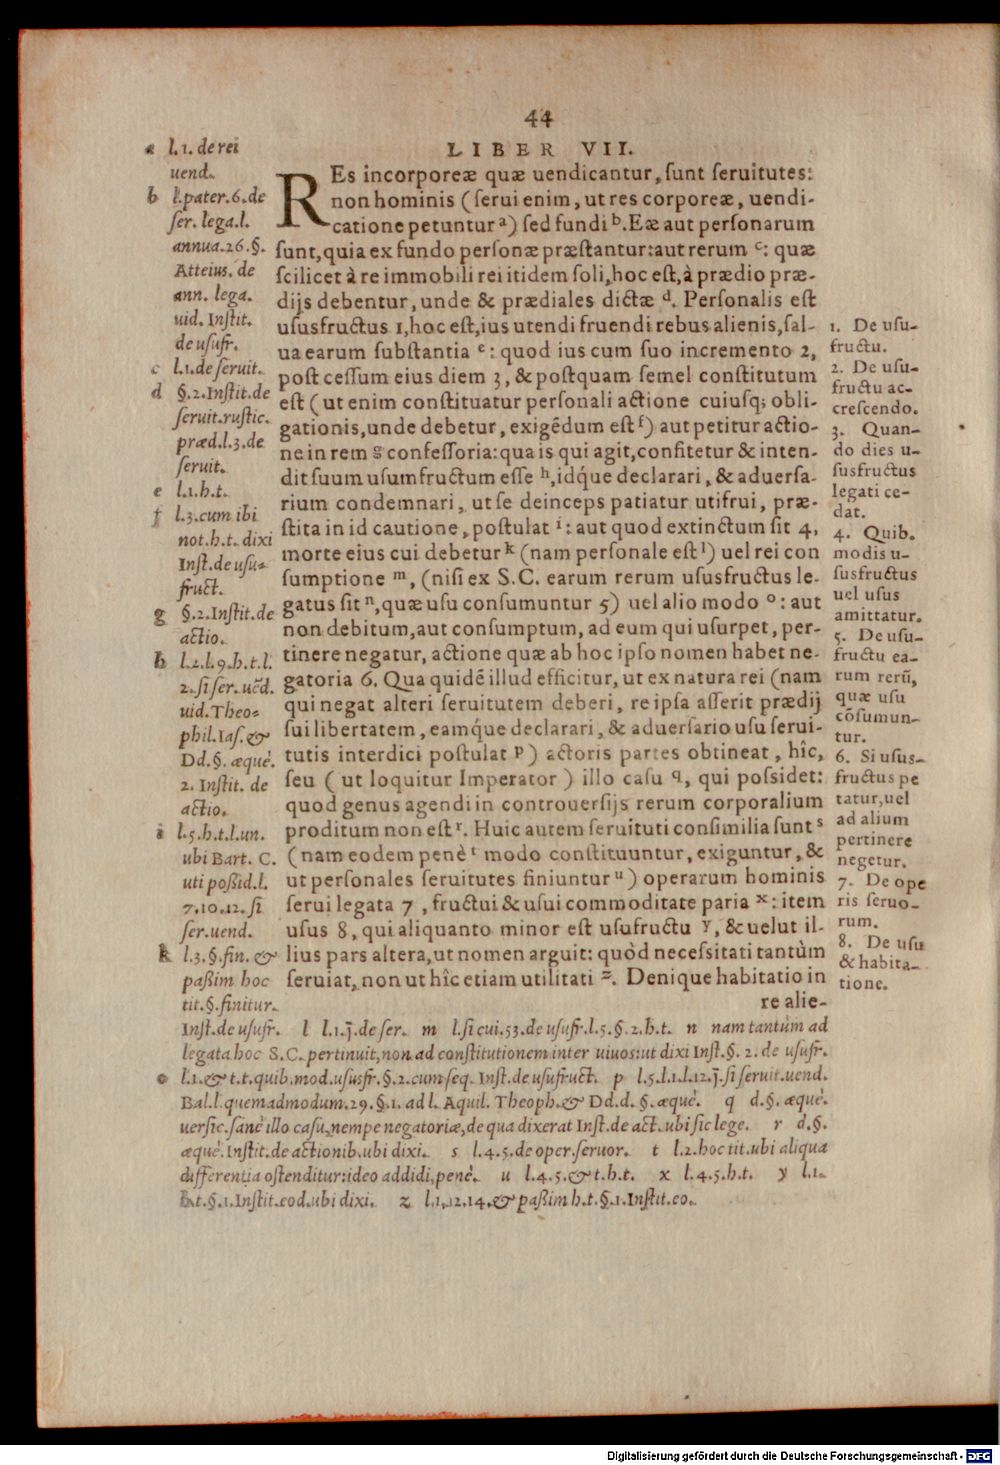 44
LIBER VII.
REs incorporeæ quæ uendicantur, sunt seruitutes:
non hominis (serui enim, ut res corporeæ, uendi-
catione petuntur a) sed fundi b. Eæ aut personarum
sunt, quia ex fundo personæ præstantur: aut rerum c: quæ
scilicet à re immobili rei itidem soli, hoc est, à prædio præ-
dijs debentur, unde & prædiales dictæ d. Personalis est
ususfructus 1, hoc est, ius utendi fruendi rebus alienis, sal-
ua earum substantia e: quod ius cum suo incremento 2,
post cessum eius diem 3, & postquam semel constitutum
est (ut enim constituatur personali actione cuiusq; obli-
gationis, unde debetur, exigēdum est f) aut petitur actio-
ne in rem g confessoria: qua is qui agit, confitetur & inten-
dit suum usumfructum esse h, idq́ue declarari, & aduersa-
rium condemnari, ut se deinceps patiatur utifrui, præ-
stita in id cautione, postulat i: aut quod extinctum sit 4,
morte eius cui debetur k (nam personale est l) uel rei con
sumptione m, (nisi ex S.C. earum rerum ususfructus le-
gatus sit n, quæ usu consumuntur 5) uel alio modo o: aut
non debitum, aut consumptum, ad eum qui usurpet, per-
tinere negatur, actione quæ ab hoc ipso nomen habet ne-
gatoria 6. Qua quidē illud efficitur, ut ex natura rei (nam
qui negat alteri seruitutem deberi, re ipsa asserit prædij
sui libertatem, eamq́ue declarari, & aduersario usu serui-
tutis interdici postulat p) actoris partes obtineat, hîc,
seu (ut loquitur Imperator) illo casu q, qui possidet:
quod genus agendi in controuersijs rerum corporalium
proditum non est r. Huic autem seruituti consimilia sunt s
(nam eodem penè t modo constituuntur, exiguntur, &
ut personales seruitutes finiuntur u) operarum hominis
serui legata 7, fructui & usui commoditate paria x: item
usus 8, qui aliquanto minor est usufructu y, & uelut il-
lius pars altera, ut nomen arguit: quòd necessitati tantùm
seruiat, non ut hîc etiam utilitati z. Denique habitatio in
re alie-
a l.1. de rei
uend.
b l.pater.6.de
ser. lega.l.
annua.26.§.
Atteius. de
ann. lega.
uid. Instit.
de usufr.
c l.1.de seruit.
d §.2.Instit.de
seruit.rustic.
præd.l.3.de
seruit.
e l.1.h.t.
f l.3.cum ibi
not.h.t. dixi
Inst.de usu-
fruct.
g §.2.Instit.de
actio.
h l.2.l.9.h.t.l.
2.si ser.uēd.
uid.Theo-
phil.Ias.&
Dd.§. æquè.
2. Instit. de
actio.
i l.5.h.t.l.un.
ubi Bart. C.
uti possid.l.
7.10.12.si
ser.uend.
k l.3.§.fin. &
passim hoc
tit.§.finitur.
Inst.de usufr. l l.1.j̄.de ser. m l.si cui.53.de usufr.l.5.§.2.h.t. n nam tantùm ad
legata hoc S.C. pertinuit, non ad constitutionem inter uiuos: ut dixi Inst.§.2.de usufr.
o l.1.& t.t.quib.mod.ususfr.§.2.cum seq. Inst.de usufruct. p l.5.l.1.l.12.j̄.si seruit.uend.
Bal.l.quemadmodum.29.§.1. ad l. Aquil. Theoph.& Dd.d. §. æquè. q d.§. æquè.
uersic.sanè illo casu, nempe negatoriæ, de qua dixerat Inst.de act.ubi sic lege. r d.§.
æquè.Instit.de actionib.ubi dixi. s l.4.5.de oper.seruor. t l.2.hoc tit.ubi aliqua
differentia ostenditur: ideo addidi, penè. u l.4.5.& t.h.t. x l.4.5.h.t. y l.1.
h.t.§.1.Instit.eod.ubi dixi. z l.1.12.14.& passim h.t.§.1.Instit.eo.
1. De usu-
fructu.
2. De usu-
fructu ac-
crescendo.
3. Quan-
do dies u-
susfructus
legati ce-
dat.
4. Quib.
modis u-
susfructus
uel usus
amittatur.
5. De usu-
fructu ea-
rum rerū,
quæ usu
cōsumun-
tur.
6. Si usus-
fructus pe
tatur, uel
ad alium
pertinere
negetur.
7. De ope
ris seruo-
rum.
8. De usu
& habita-
tione.
Digitalisierung gefördert durch die Deutsche Forschungsgemeinschaft - DFG